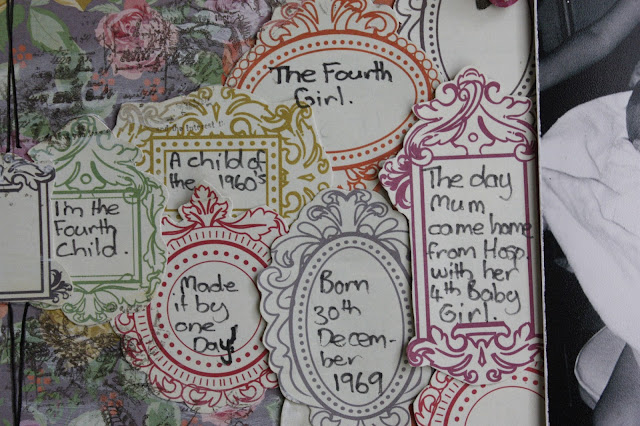 The Fourth
Girl.
A child of
the 1960's
I'm the
Fourth
Child.
Made
it by
one
Day!
Born
30th
Decem-
ber
1969
The day
Mum
came home
from Hosp.
with her
4th Baby
Girl.